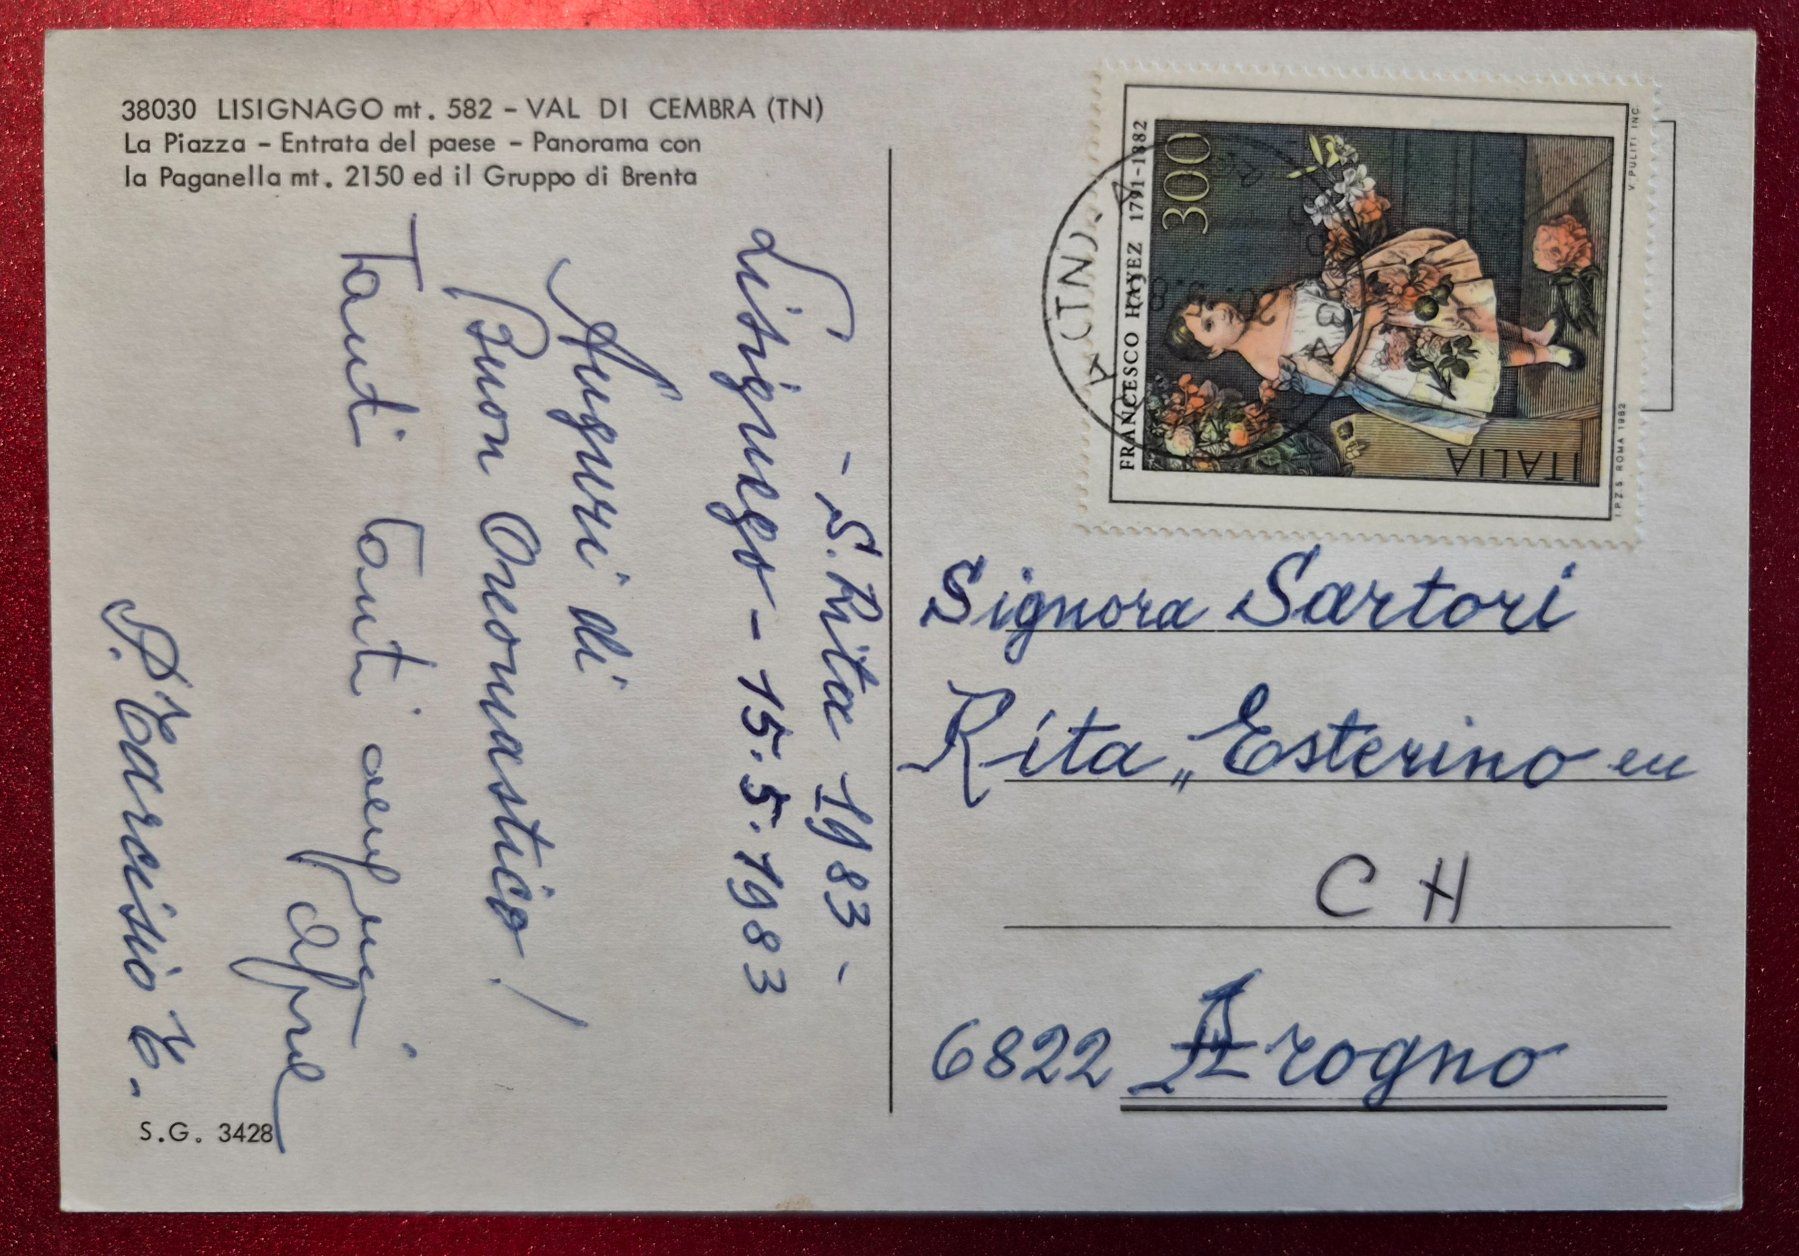 38030 LISIGNAGO mt. 582 - VAL DI CEMBRA (TN)
La Piazza - Entrata del paese - Panorama con
la Paganella mt. 2150 ed il Gruppo di Brenta
- S. Rita 1983 -
Lisignago - 15.5.1983
Auguri di
Buon Onomastico!
Tanti tanti auguri
P. Tarcisio T.
S.G. 3428
FRANCESCO HAYEZ 1791-1882
300
ITALIA
I.P.Z.S. ROMA 1982
V. PULITI INC.
(TN)
Signora Sartori
Rita „Esterino
CH
6822 Arogno